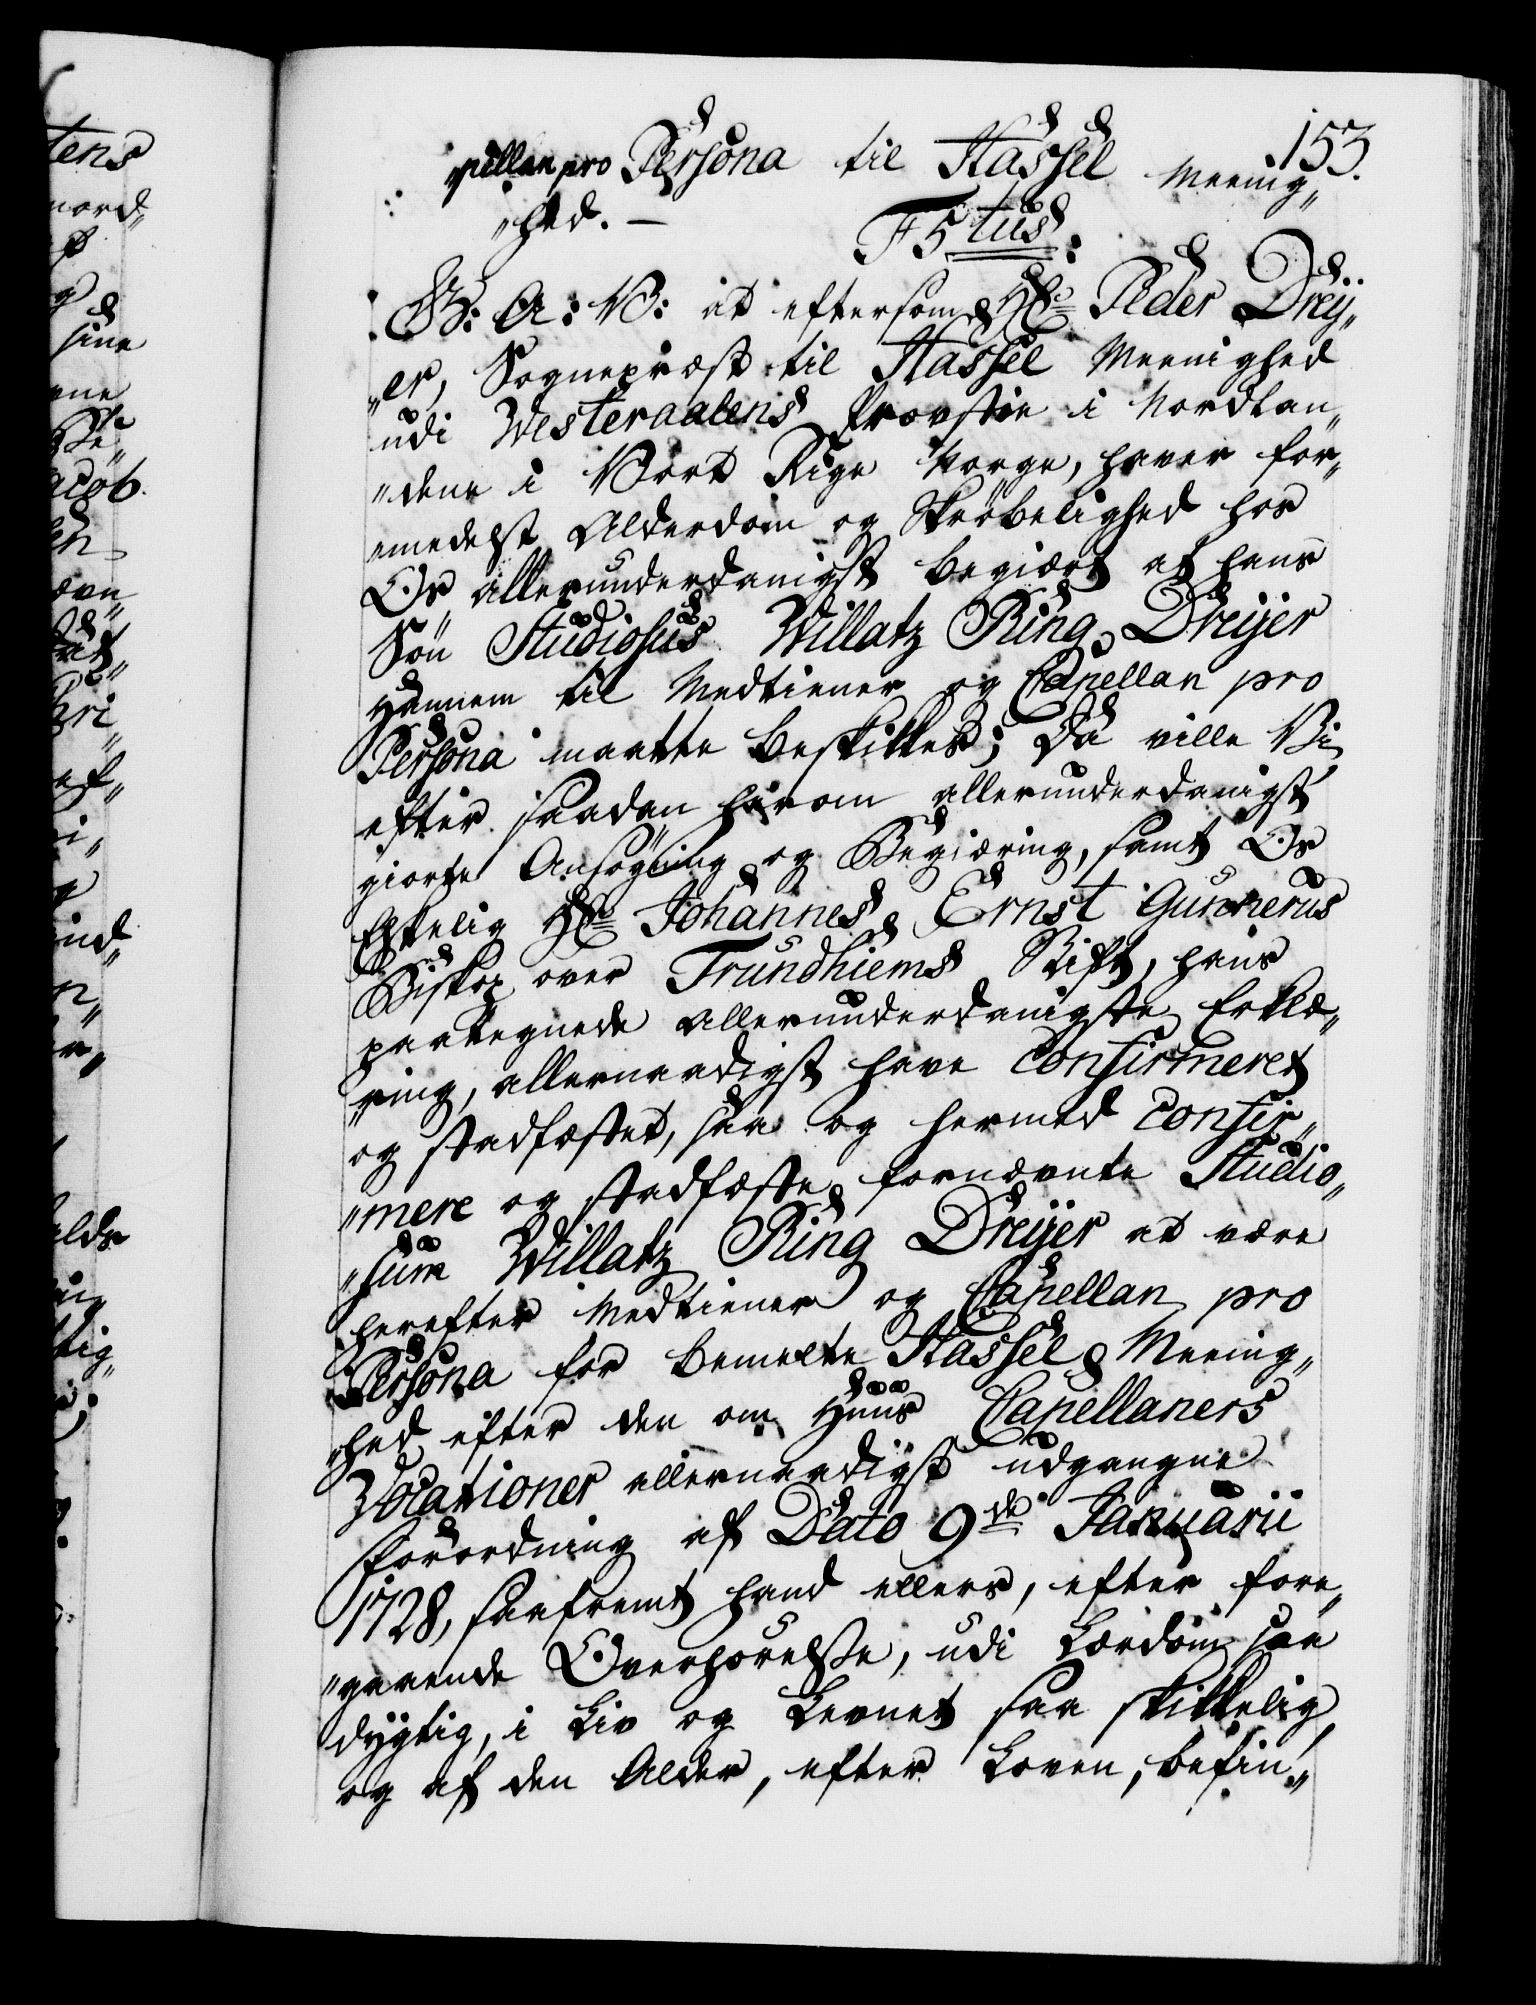 153.
„pellan pro Persona til Hassel Meenig„
„hed. —
F5tus:
G: A: V: at eftersom Hr Peder Drey„
„er, Sognepræst til Hassel Meenighed
udi Westeraalens Provstie i Nordlan„
„dene i Vort Rige Norge, haver for„
„medelst Alderdom og Skrøbelighed hos
Os allerunderdanigst begiært at hans
Søn Studiosus Willatz Ring Dreijer
Hannem til Medtiener og Capellan pro
Persona maatte beskikkes; Da ville Vi
efter saadan herom allerunderdanigst
giorte Ansøgning og Begiæring, samt Os
Elskelig Hr Johannes Ernst Gunnerus
Biskop over Trundhiems Stift, hans
paategnede allerunderdanigste Erklæ„
„ring, allernaadigst have Confirmeret
og stadfæstet, saa og hermed Confir„
„mere og stadfæste fornævnte Studio„
„sum Willatz Ring Dreijer at være
herefter Medtiener og Capellan pro
Persona for bemelte Hassel Meenig„
„hed efter den om Huus Capellaners
Vocationer allernaadigst udgangne
Forordning af Dato 9de Januarii
1728, saafremt hand ellers, efter fore„
„gaaende Overhørelse, udi Lærdom saa
dygtig, i Liv og Levnet saa skikkelig
og af den Alder, efter Loven, befin„